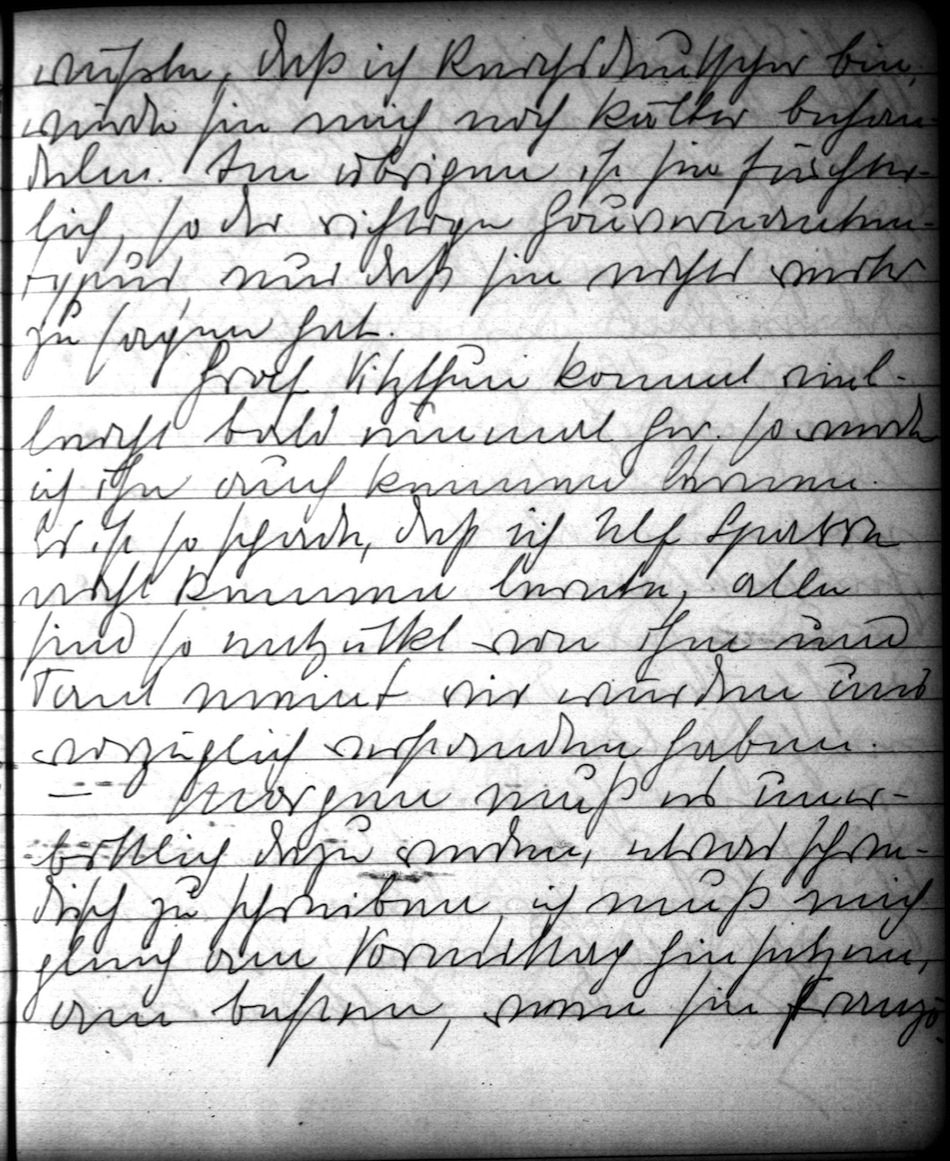 wüßte, daß ich Reichsdeutscher bin,
würde sie mich noch kälter behan-
deln. Im übrigen ist sie fürchter-
lich, so der richtige Gouvernanten-
typus, nur daß sie nichts mehr
zu sagen hat.
Graf Vitzthum kommt viel-
leicht bald einmal her. So werde
ich ihn auch kennen lernen.
Es ist so schade, daß ich Ulf Sparre
nicht kennen lernte, alle
sind so entzückt von ihm und
Tant meint wir würden uns
vorzüglich verstanden haben.
— Morgen muß es uner-
bittlich dazu werden, etwas schwe-
disch zu schreiben, ich muß mich
gleich am Vormittag hinsetzen,
am besten, wenn sie Franzö-